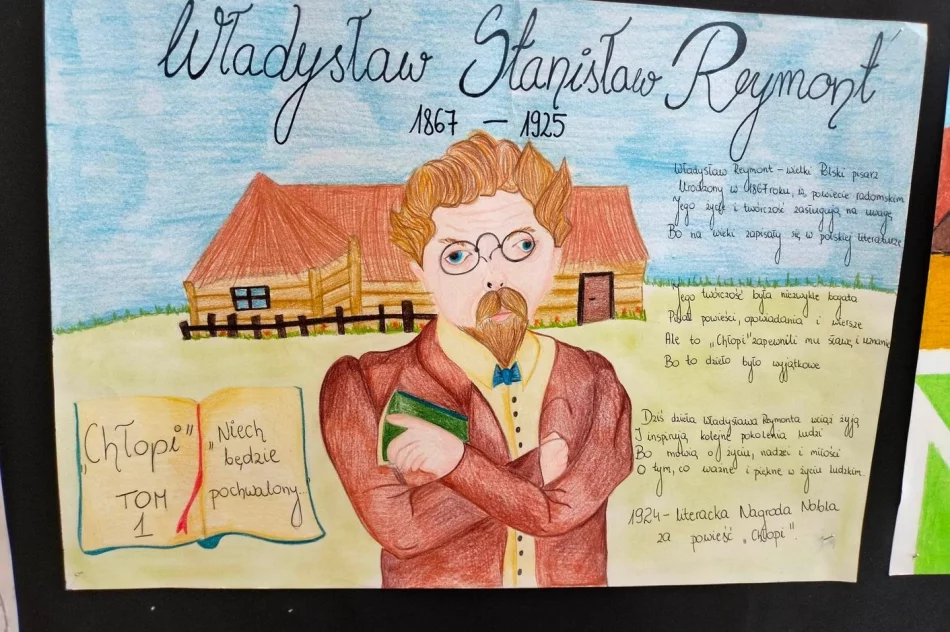 Władysław Stanisław Reymont
1867 — 1925
Władysław Reymont – wielki Polski pisarz
Urodzony w 1867 roku, w powiecie radomskim
Jego życie i twórczość zasługują na uwagę
Bo na wieki zapisały się w polskiej literaturze
Jego twórczość była niezwykle bogata
Pisał powieści, opowiadania i wiersze
Ale to „Chłopi" zapewnili mu sławę i uznanie
Bo to dzieło było wyjątkowe
Dziś dzieła Władysława Reymonta wciąż żyją
I inspirują kolejne pokolenia ludzi
Bo mówią o życiu, nadziei i miłości
O tym, co ważne i piękne w życiu ludzkim.
1924 – literacka Nagroda Nobla
za powieść „Chłopi".
„Chłopi"
TOM
1
„Niech
będzie
pochwalony...